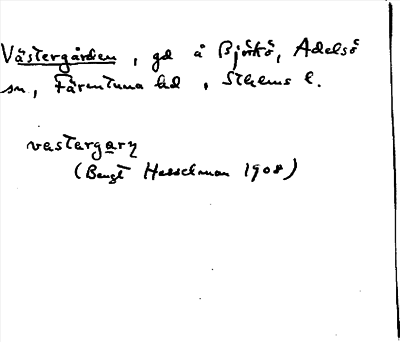 Västergården, gd å Björkö, Adelsö
sn, Färentuna hd, Sthlms l.
vestergarn
(Bengt Hesselman 1908)